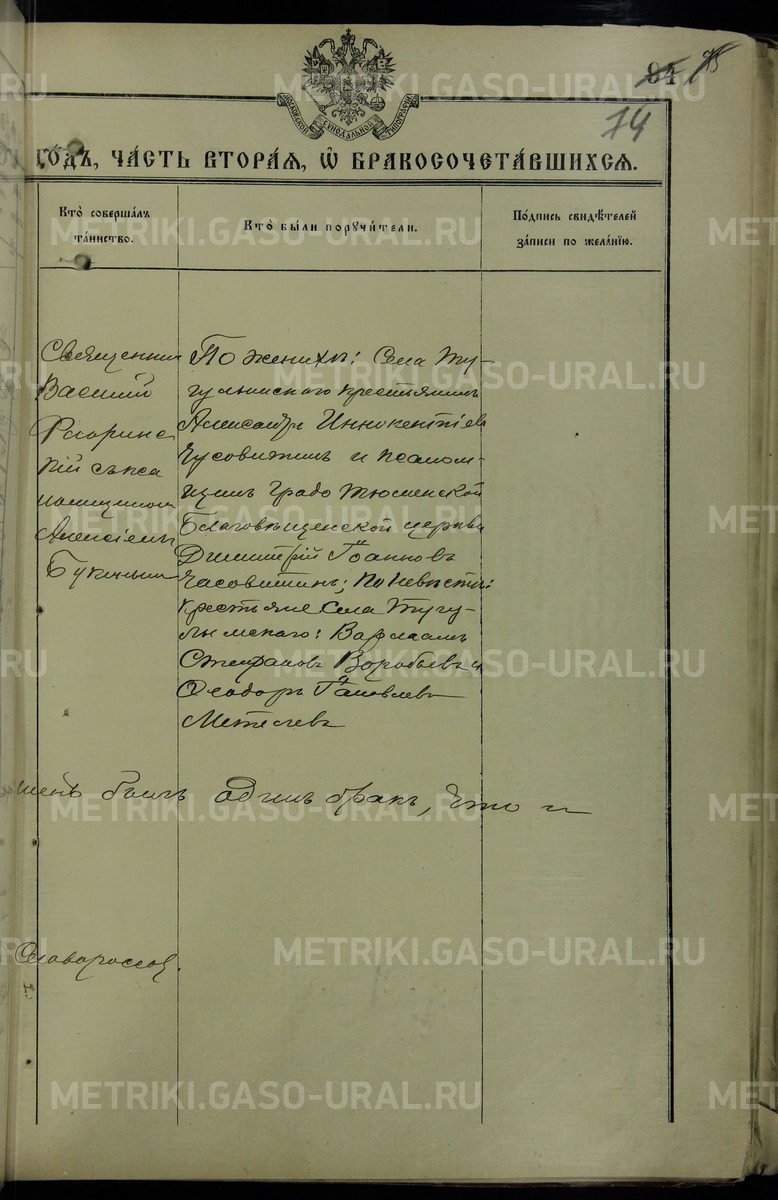 МОСКОВСКОЙ СУНОДАЛЬНОЙ ТИПОГРАФІИ
84 75
74
ГО́ДЪ, ЧА́СТЬ ВТОРА́Я, Ѡ БРАКОСОЧЕТА́ВШИХСѦ.
Кто̀ соверша́лъ
та́инство.
Кто̀ бы́ли порꙋчи́тели.
По́дпись свидѣ́телей
за́писи по жела́нїю.
Священник
Василий
Флоринс
кій съ пса
ломщиком
Алексіемъ
По женихѣ: Села Ту-
гулымскаго крестьянинъ
Александръ Иннокентіев
Чусовитинъ и псалом-
щикъ градо Тюменской
Благовѣщенской церкви
Димитрій Іоаннов
Часовитинъ; по невѣстѣ:
крестьяне села Тугу-
лымскаго: Варлаамъ
Стефановъ Воробьевъ и
Ѳеодоръ Іаковлевъ
Метелевъ
былъ одинъ бракъ, что и
METRIKI.GASO-URAL.RU